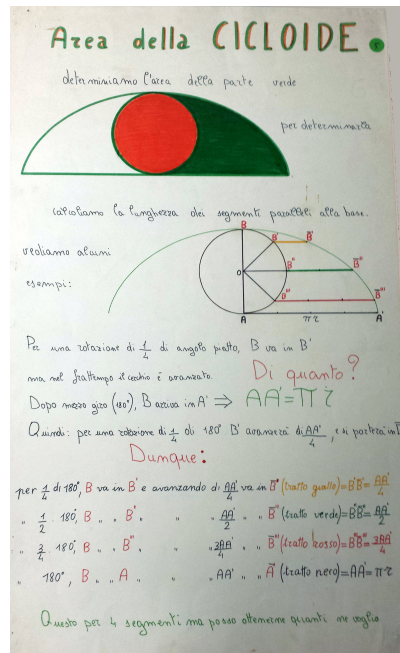 Area della CICLOIDE.
determiniamo l'area della parte verde
per determinarla
calcoliamo la lunghezza dei segmenti paralleli alla base.
vediamo alcuni
esempi:
B
B' B̅'
O B'' B̅''
B''' B̅'''
A πr A'
Per una rotazione di 1/4 di angolo piatto, B va in B'
ma nel frattempo il cerchio è avanzato. Di quanto?
Dopo mezzo giro (180°), B arriva in A' ⇒ AA' = πr
Quindi: per una rotazione di 1/4 di 180° B' avanzerà di AA'/4, e si porterà in
Dunque:
per 1/4 di 180°, B va in B' e avanzando di AA'/4 va in B̅' (tratto giallo) = B'B̅' = AA'/4
" 1/2 180°, B " " B'' " " AA'/2 " " B̅'' (tratto verde) = B''B̅'' = AA'/2
" 3/4 180°, B " " B''' " " 3AA'/4 " " B̅''' (tratto rosso) = B'''B̅''' = 3AA'/4
" 180°, B " " A " " AA' " " A̅ (tratto nero) = AA' = πr
Questo per 4 segmenti ma posso ottenerne quanti ne voglio